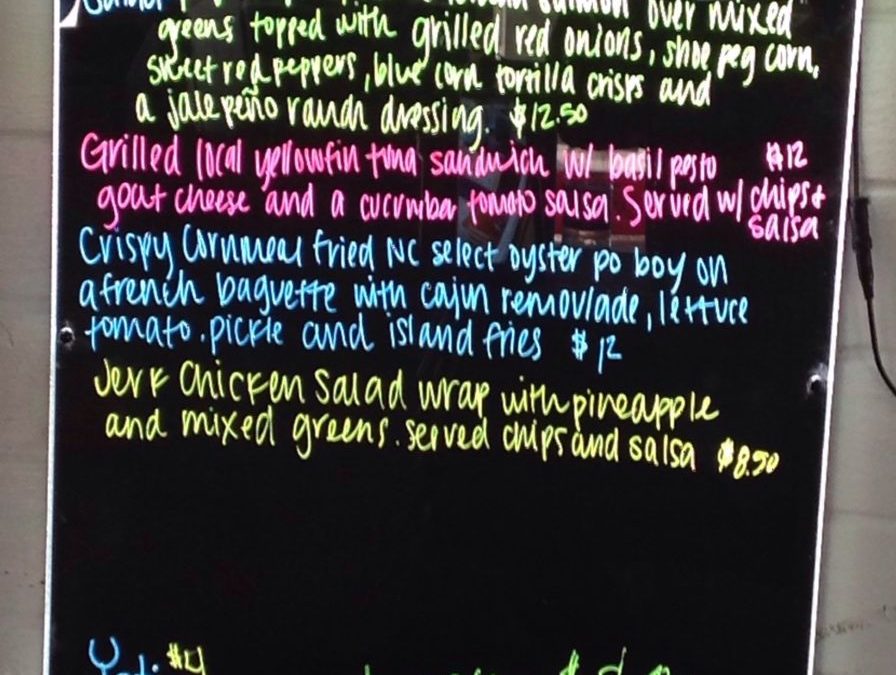 salmon over mixed
greens topped with grilled red onions, shoe peg corn,
sweet red peppers, blue corn tortilla crisps and
a jalepeño ranch dressing. $12.50
Grilled local yellowfin tuna sandwich w/ basil pesto $12
goat cheese and a cucumber tomato salsa. Served w/ chips &
salsa
Crispy Cornmeal fried NC select oyster po boy on
a french baguette with cajun removlade, lettuce
tomato, pickle and island fries $12
Jerk Chicken Salad wrap with pineapple
and mixed greens. served chips and salsa $8.50
$4